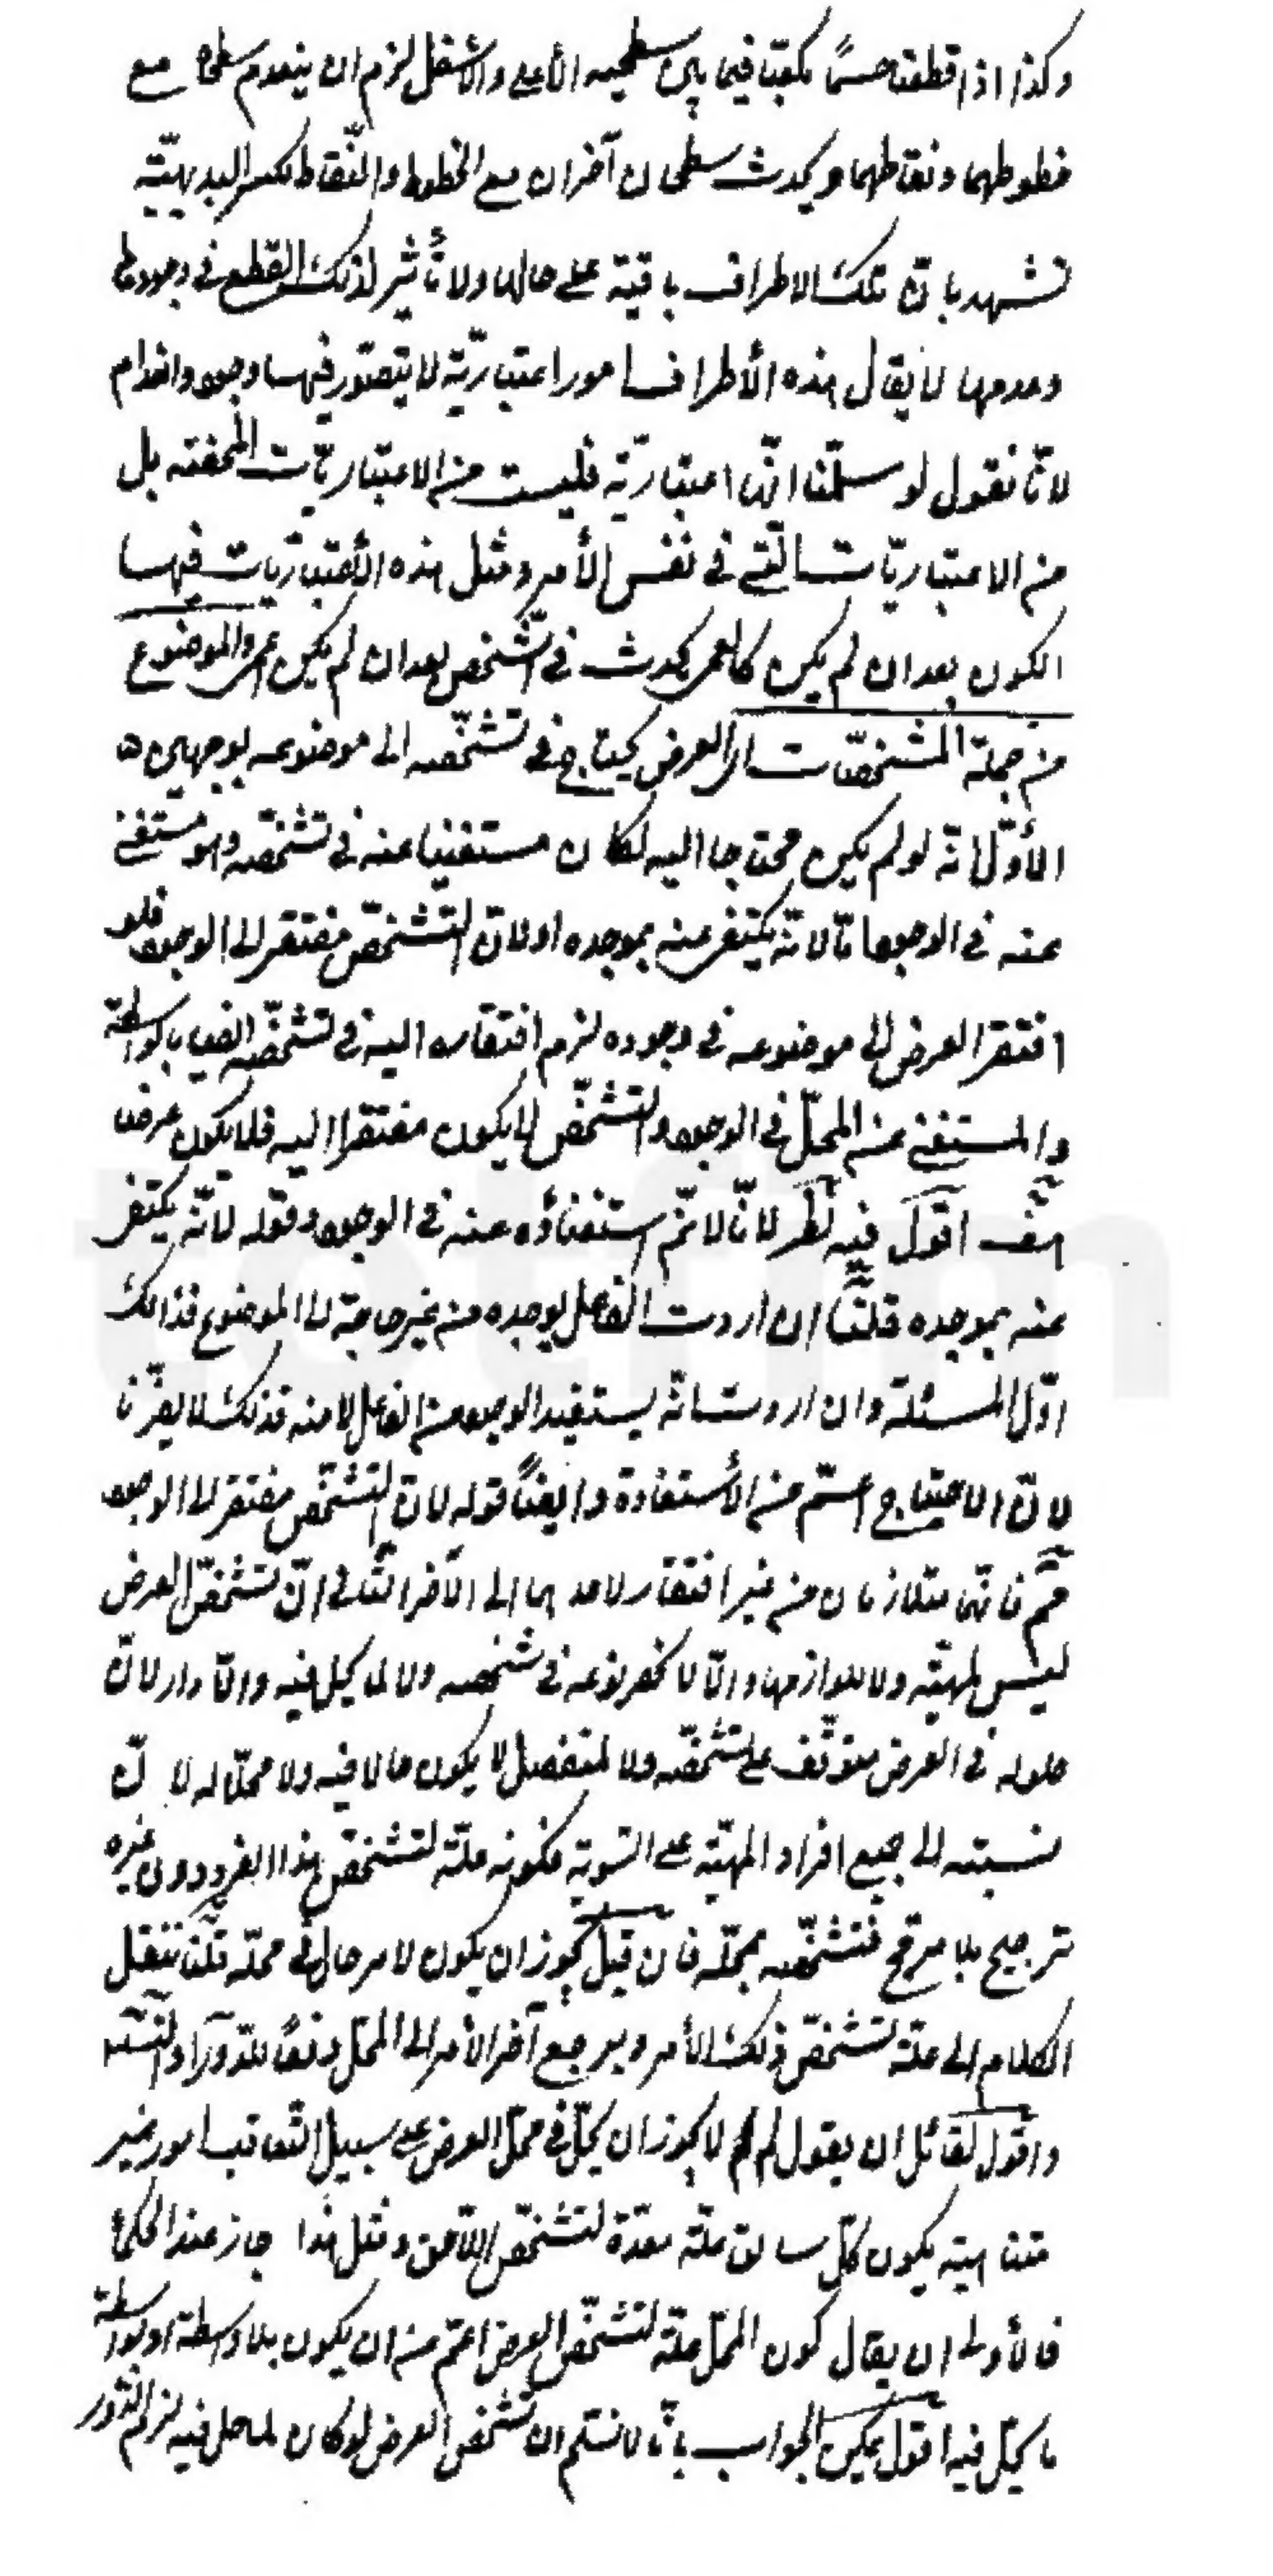 وكذا اذا قطعنا جسمًا مكعبّا فيما بين سطحيه الأعلى والأسفل لزم ان ينعدم سطحاه مع
خطوطهما ونقاطهما ويحدث سطحان آخران مع الخطوط والنّقاط لكن البديهيّة
تشهد بانّ تلك الاطراف باقية على حالها ولا تأثير لذلك القطع في وجودها
وعدمها لا يقال هذه الأطراف امور اعتباريّة لا يتصوّر فيها وجود وانعدام
لانّا نقول لو سلّمنا انّها اعتباريّة فليست من الاعتباريّات المحضة بل
من الاعتباريّات الّتي في نفس الأمر ومثل هذه الأعتباريّات فيها
الكون بعد ان لم يكن كالعمى يحدث في الشّخص بعد ان لم يكن اعمى والموضوع
من جملة المشخّصات اى العرض يحتاج في تشخّصه الى موضوعه لوجهين
الأوّل انّه لو لم يكن محتاجا اليه لكان مستغنيا عنه في تشخّصه وهو مستغن
عنه في الوجود امّا لانّه يكتفى عنه بموجده او لانّ التّشخّص مفتقر الى الوجود فلو
افتقر العرض الى موضوعه في وجوده لزم افتقاره اليه في تشخّصه ايضا بالواسطة
والمستغنى عن المحلّ في الوجود والتّشخّص لا يكون مفتقرا اليه فلا يكون عرضا
هف اقول فيه نظر لانّا لا نم استغناؤه عنه في الوجود وقوله لانّه يكتفى
عنه بموجده قلنا ان اردت انّ الفاعل يوجده من غير حاجة الى الموضوع فذالك
اوّل المسئلة وان اردت انّه يستفيد الوجود من الفاعل لا منه فذلك لا يضرّنا
لانّ الاحتياج اعمّ من الأستفادة وايضًا قوله لانّ التّشخّص مفتقر الى الوجود
مم فانّهما متلازمان من غير افتقار لاحدهما الى الآخر الثّانى انّ تشخّص العرض
ليس لمهيّته ولا للوازمها والّا لانحصر نوعه في شخصه ولا لما يحلّ فيه والّا دار لانّ
حلوله في العرض متوقّف على تشخّصه ولا لمنفصل لا يكون حالا فيه ولا محلّا له لانّ
نسبته الى جميع افراد المهيّة على السّوية فكونه علّة لتشخّص هذا الفرد دون غيره
ترجيح بلا مرجّح فتشخّصه بمحلّه فان قيل يجوز ان يكون لامر حالّ في محلّه قلنا ننقل
الكلام الى علّة تشخّص ذلك الأمر ويرجع آخر الأمر الى المحلّ دفعًا للدّور او التّسلسل
واقول لقائل ان يقول لم لا يجوز ان يحلّ في محلّ العرض على سبيل التّعاقب امور غير
متناهية يكون كلّ سابق علّة معدّة لتشخّص اللّاحق ومثل هذا جاز عند الحكماء
فالأولى ان يقال كون المحلّ علّة لتشخّص العرض اعمّ من ان يكون بلا واسطة او بواسطة
ما يحلّ فيه اقول يمكن الجواب بانّا لا نسلم ان تشخّص العرض لو كان لما حل فيه لزم الدّور